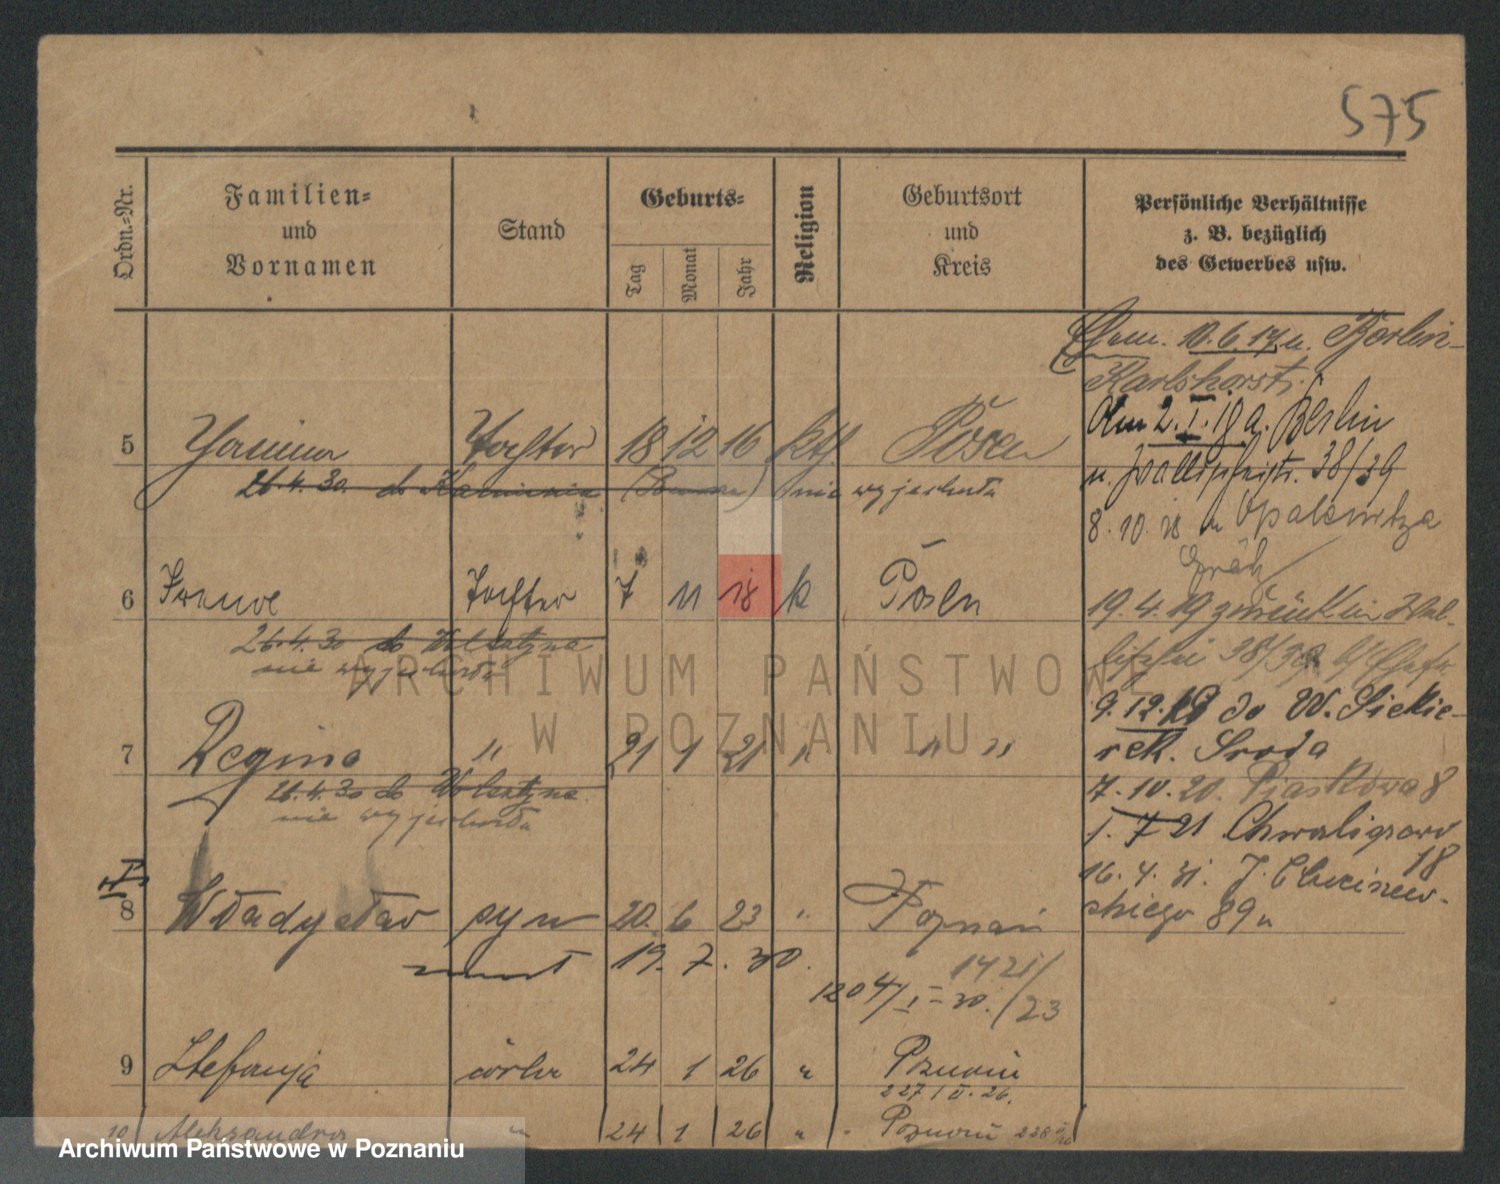 575
Ordn.-Nr.
Familien-
und
Vornamen
Stand
Geburts-
Tag
Monat
Jahr
Religion
Geburtsort
und
Kreis
Persönliche Verhältnisse
z. B. bezüglich
des Gewerbes usw.
5 Janina Tochter 18 12 16 kth Posen
26.4.30 do nie wyjechała
6 Irene Tochter 7 11 18 k Posen
26.4.30 do Wolsztyna
nie wyjechała
7 Regina " 21 1 21 " " "
26.4.30 do Wolsztyna
nie wyjechała
8 Władysław syn 20. 6 23 " Poznań
19. 7. 30.
1425/23
1204/I-30.
9 Stefanja córka 24 1 26 " Poznań
227/II.26.
10 Aleksandra " 24 1 26 " Poznań 228
10.6.17 n. Berlin-
Karlshorst.
2.I.19 a. Berlin
n. 38/39
8.10.18 n Opalenitza
Grätz
19.4.19 zurück in
38/39
9.12.19 do W. Siekie-
rek. Środa
7.10.20. Piaskowa 8
1.7.21 Chwaliszewo
18
16.4.31. J. Chociszew-
skiego 89
ARCHIWUM PAŃSTWOWE
W POZNANIU
Archiwum Państwowe w Poznaniu